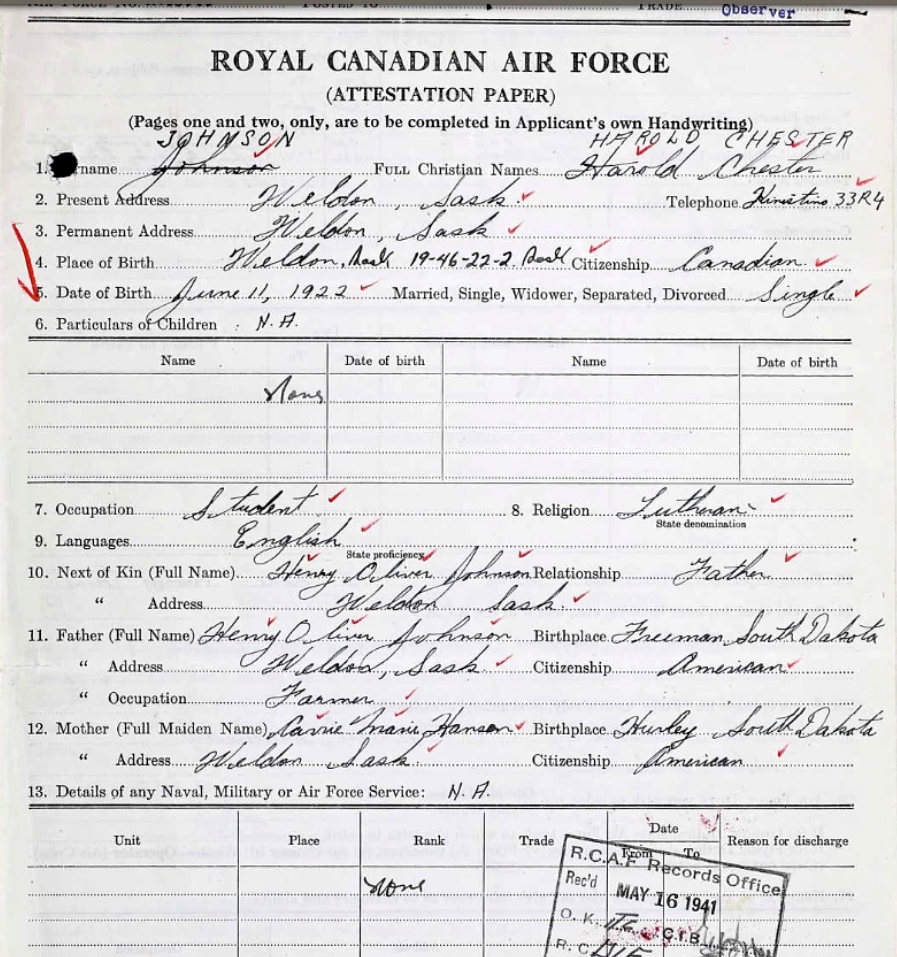 TRADE Observer
ROYAL CANADIAN AIR FORCE
(ATTESTATION PAPER)
(Pages one and two, only, are to be completed in Applicant's own Handwriting)
JOHNSON HAROLD CHESTER
1. rname Johnson FULL CHRISTIAN NAMES Harold Chester
2. Present Address Weldon, Sask Telephone Kinistino 33R4
3. Permanent Address Weldon, Sask
4. Place of Birth Weldon, Sask 19-46-22-2. Sask Citizenship Canadian
5. Date of Birth June 11, 1922 Married, Single, Widower, Separated, Divorced Single
6. Particulars of Children : N.A.
Name Date of birth Name Date of birth
None
7. Occupation Student 8. Religion Lutheran
State denomination
9. Languages English
State proficiency
10. Next of Kin (Full Name) Henry Oliver Johnson Relationship Father
" Address Weldon Sask.
11. Father (Full Name) Henry Oliver Johnson Birthplace Freeman South Dakota
" Address Weldon, Sask Citizenship American
" Occupation Farmer
12. Mother (Full Maiden Name) Carrie Marie Hanson Birthplace Hurley South Dakota
" Address Weldon Sask. Citizenship American
13. Details of any Naval, Military or Air Force Service: N.A.
Unit Place Rank Trade Date From To Reason for discharge
None
R.C.A.F. Records Office
Rec'd MAY 16 1941
O.K. C.I.B.
R.C.